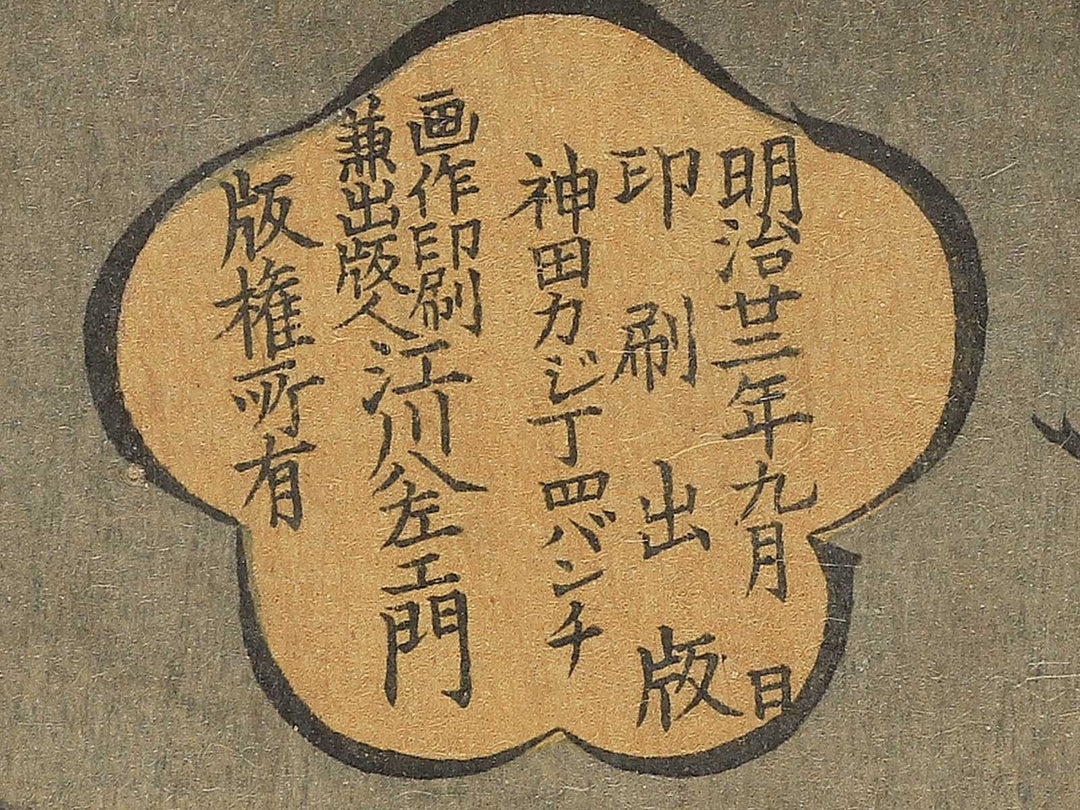 明治廿三年九月　日
印刷出版
神田カジ丁四バンチ
画作印刷
兼出版人
江川八左エ門
版権所有